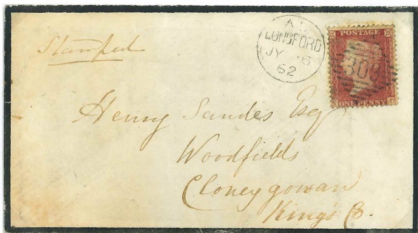 Stamped
A
LONGFORD
JY
62
POSTAGE
ONE PENNY
Henry Sandes Esq
Woodfields
Cloneygowan
Kings Co.